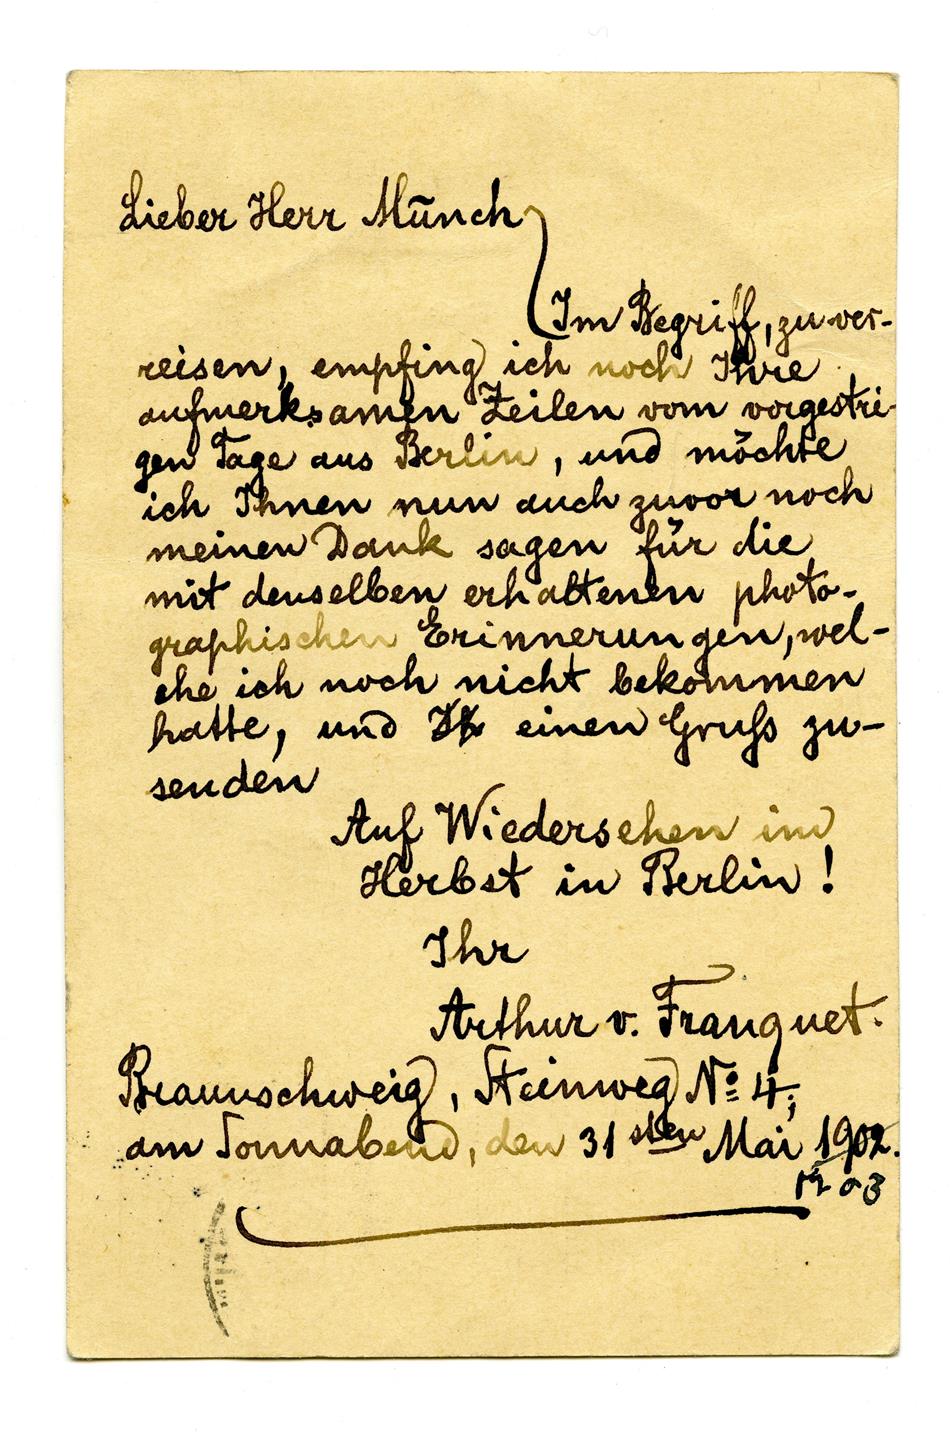 Lieber Herr Mūnch
Im Begriff, zu ver-
reisen, empfing ich noch Ihre
aufmerksamen Zeilen vom vorgestri-
gen Tage aus Berlin, und möchte
ich Ihnen nun auch zuvor noch
meinen Dank sagen für die
mit denselben erhaltenen photo-
graphischen Erinnerungen, wel-
che ich noch nicht bekommen
hatte, und einen Gruss zu-
senden
Auf Wiedersehen im
Herbst in Berlin!
Ihr
Arthur v. Franquet.
Braunschweig, Steinweg No 4;
am Sonnabend, den 31sten Mai 1902.
03